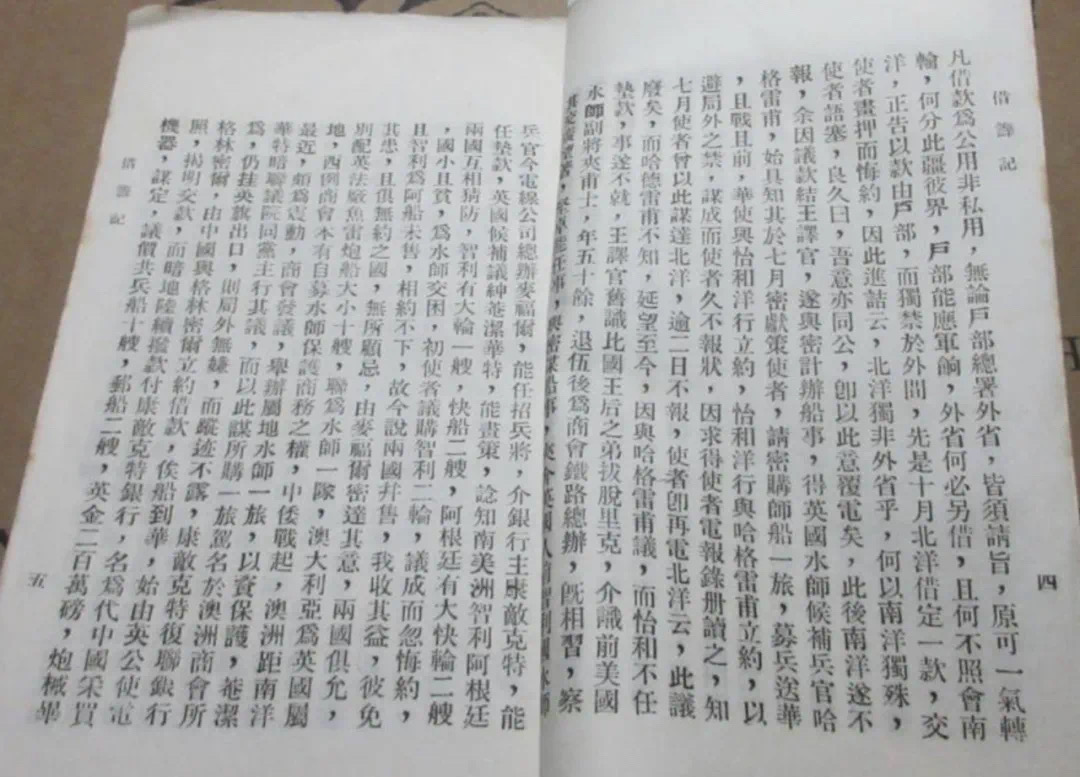 借籌記
四
凡借款爲公用非私用，無論戶部總署外省，皆須請旨，原可一氣轉
輸，何分此疆彼界，戶部能應軍餉，外省何必另借，且何不照會南
洋，正告以款由戶部，而獨禁於外間，先是十月北洋借定一款，交
使者畫押而悔約，因此進詰云，北洋獨非外省乎，何以南洋獨殊，
使者語塞，良久曰，吾意亦同公，卽以此意覆電矣，此後南洋遂不
報，余因議款結王譯官，遂與密計辦船事，得英國水師候補兵官哈
格雷甫，始具知其於七月密獻策使者，請密購師船一旅，募兵送華
，且戰且前，華使與怡和洋行立約，怡和洋行與哈格雷甫立約，以
避局外之禁，謀成而使者久不報狀，因求得使者電報錄册讀之，知
七月使者曾以此謀達北洋，逾二日不報，使者卽再電北洋云，此議
廢矣，而哈德雷甫不知，延望至今，因與哈格雷甫議，而怡和不任
墊款，事遂不就，王譯官舊識比國王后之弟拔脫里克，介識前美國
水師副將夾甫士，年五十餘，退伍後爲商會鐵路總辦，旣相習，察
兵官今電線公司總辦麥福爾，能任招兵將，介銀行主康敵克特，能
任墊款，英國候補議紳菴潔華特，能畫策，諗知南美洲智利阿根廷
兩國互相猜防，智利有大輪一艘，快船二艘，阿根廷有大快輪二艘
，國小且貧，爲水師交困，初使者議購智利二輪，議成而忽悔約，
且智利爲阿船未售，相約不下，故今說兩國幷售，我收其益，彼免
其患，且俱無約之國，無所顧忌，由麥福爾密達其意，兩國俱允，
別配英法廠魚雷炮船大小十艘，聯爲水師一隊，澳大利亞爲英國屬
地，西例商會本有自募水師保護商務之權，中倭戰起，澳洲距南洋
最近，頗爲震動，商會發議，舉辦屬地水師一旅，以資保護，菴潔
華特暗聯議院同黨主行其議，而以此謀所購一旅駕名於澳洲商會所
爲，仍挂英旗出口，則局外無嫌，而蹤迹不露，康敵克特復聯銀行
格林密爾，由中國與格林密爾立約借款，俟船到華，始由英公使電
照，揭明交款，而暗地陸續撥款付康敵克特銀行，名爲代中國采買
機器，謀定，議價共兵船十艘，郵船二艘，英金二百萬磅，炮械畢
借籌記
五